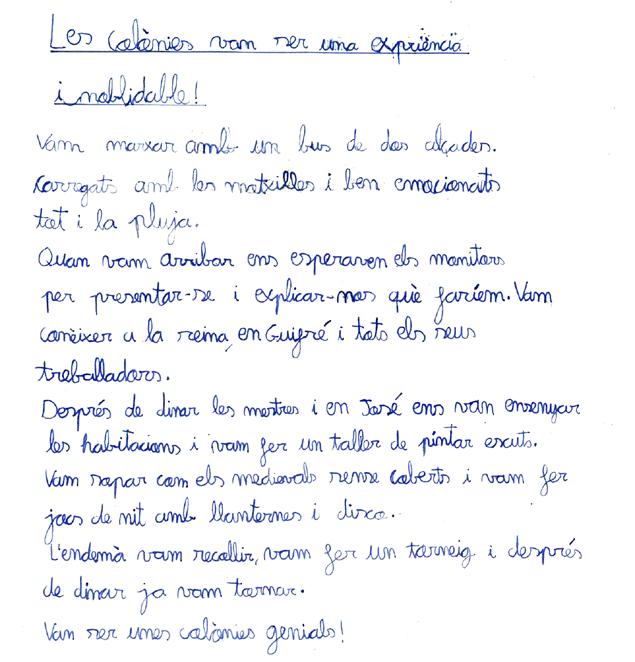 Les colònies van ser una expriència
inoblidable!
Vam marxar amb un bus de dos alçades.
Carregats amb les motxilles i ben emocionats
tot i la pluja.
Quan vam arribar ens esperaven els monitors
per presentar-se i explicar-nos què faríem. Vam
conèixer a la reina, en Guifré i tots els seus
treballadors.
Després de dinar les mestres i en José ens van ensenyar
les habitacions i vam fer un taller de pintar escuts.
Vam sopar com els medievals sense coberts i vam fer
jocs de nit amb llanternes i disco.
L'endemà vam recollir, vam fer un torneig i després
de dinar ja vam tornar.
Van ser unes colònies genials!